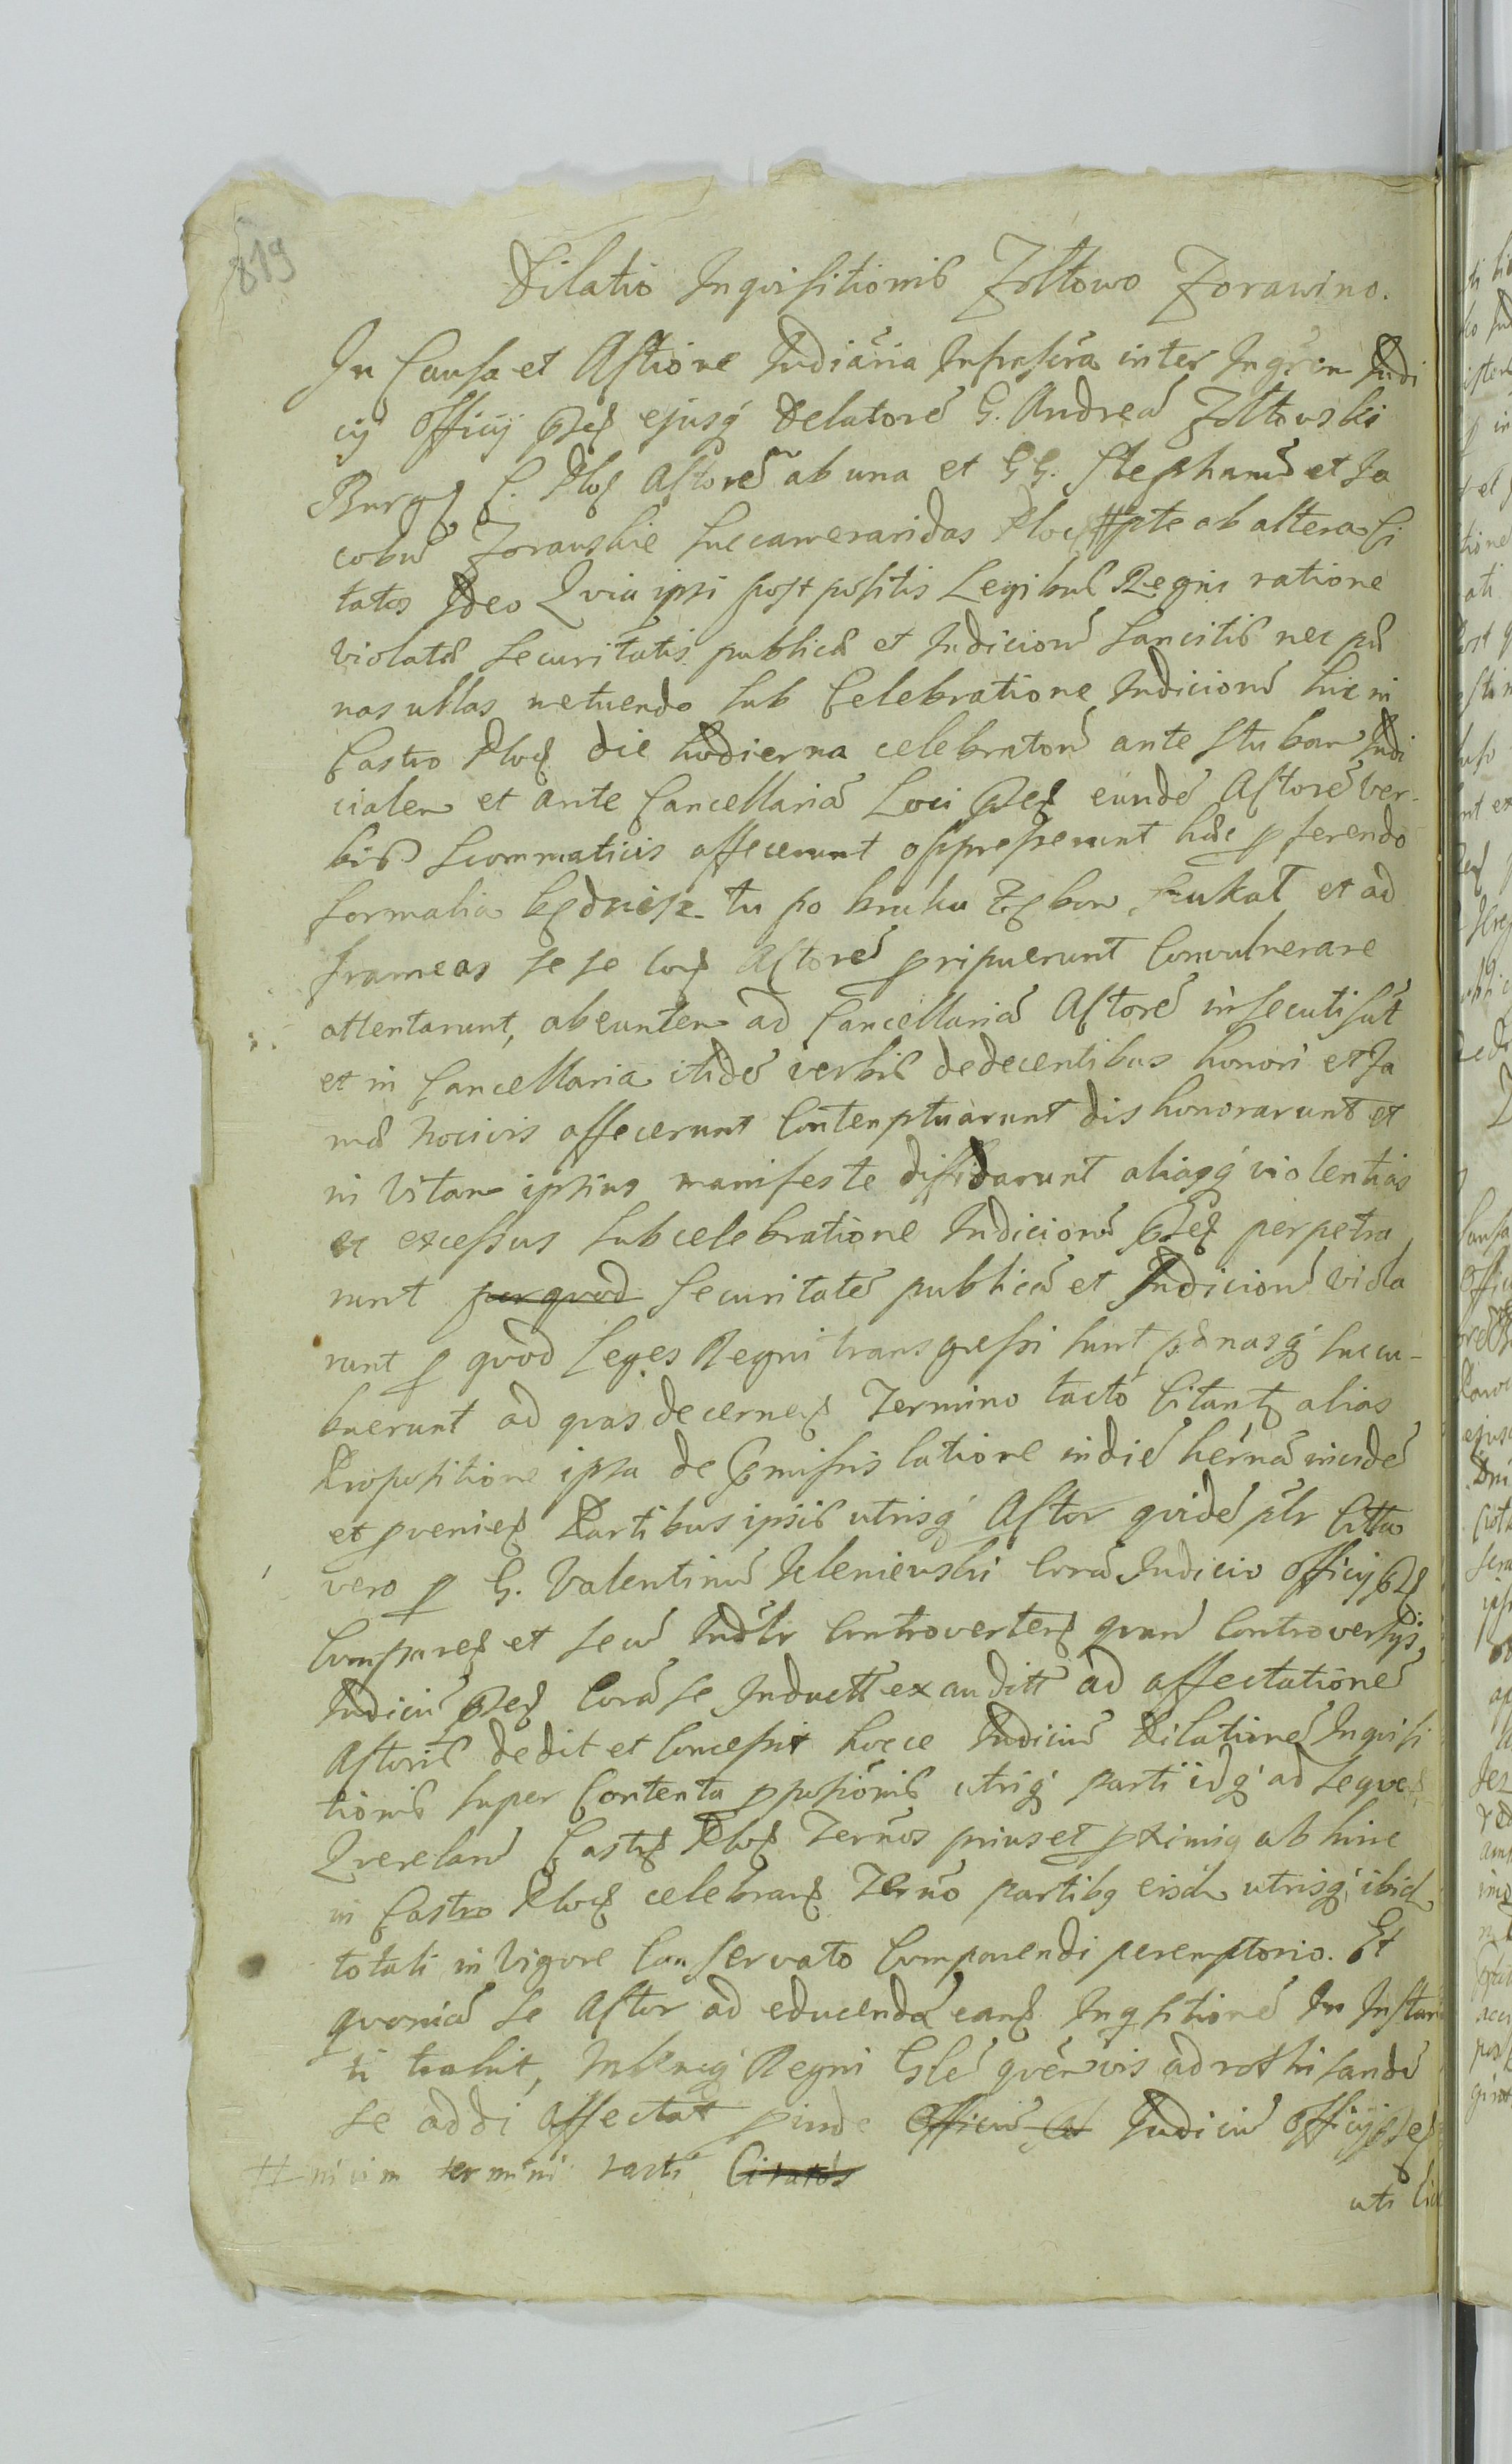 819
Dilatio Inquisitionis Zołtowo Zorawino.
In Causa et Actione Judiaria Infrascra inter Ingrem Judi
cij Officij ejusq Delatore G. Andrea Zołtowski
Burg C. Ploc Actore ab una et GG. Stephanu et Ja
cobu Zorawskie Succameraridas Ploc # pte ab altera Ci
tatos Ideo Qvia ipsi post positis Legibus Regni ratione
violatæ securitatis publicæ et Judicioru sancitis nec pæ
nas ullas metuendo sub Celebratione Judicioru hic in
Castro Ploc die hodierna celebratoru ante stubam Judi
cialem et ante Cancellaria Loci eunde Actore ver-
bis scommaticis affecerunt oppresserunt hæc pferendo
formalia będziesz tu po bruku zębow szukał et ad
frameas se se Actore pripuerunt Convulnerare
attentarunt, abeuntem ad Cancellaria Actore insecuti sut
et in Cancellaria itide verbis dedecentibus honori et fa
mæ nocivis affecerunt Contemptuarunt dishonorarunt et
in vitam ipsius manifeste diffidarunt aliasq violentias
et excessus sub celebratione Judicioru perpetra
runt per quod securitate publica et Judicioru viola
runt p quod Leges Regni transgressi sunt pænasq succu-
buerunt ad quas decernen Termino tacto Citant alias
Propositione ipsa de pmissis latione in die herna incide
et pvenien Partibus ipsis utrisq Actor quide plr Citta
vero p G. Valentinu Jeleniewski Cora Judicio Officij
Comparen et secu Judlr Controverten quaru Controversijs
Judiciu Cora se Inductt exauditt ad affectatione
Actoris dedit et Concessit hocce Judiciu Dilatione Inquisi
tionis super Contenta pposionis utriq parti idq ad seque
Querelaru Castr Ploc Ternos prius et pximiq ab hinc
in Castro Ploc celebran Terno partibq eisde utrisq ibid
totali in vigore Conservato Comparendi peremptorio. Et
quonia se Actor ad educenda eand Inqsitione In Instan
ti trahit, Regni Gle quenvis ad rothisandu
se addi affectat pinde Officiu Judiciu Officij
# nicim termini tacti Citatos
uti